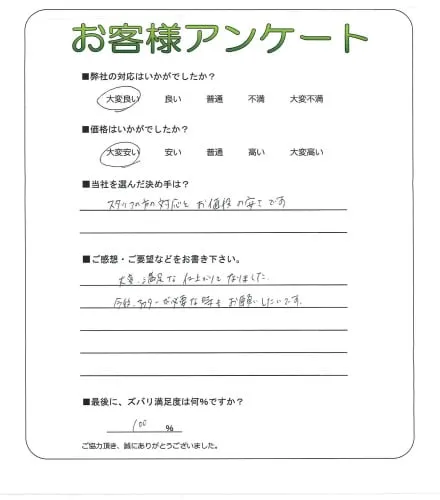 お客様アンケート
■弊社の対応はいかがでしたか？
大変良い 良い 普通 不満 大変不満
■価格はいかがでしたか？
大変安い 安い 普通 高い 大変高い
■当社を選んだ決め手は？
スタッフの方の対応と お価格の安さです
■ご感想・ご要望などをお書き下さい。
大変、満足な仕上がりとなりました。
が必要な時もお願いしたいです。
■最後に、ズバリ満足度は何%ですか？
100 %
ご協力頂き、誠にありがとうございました。